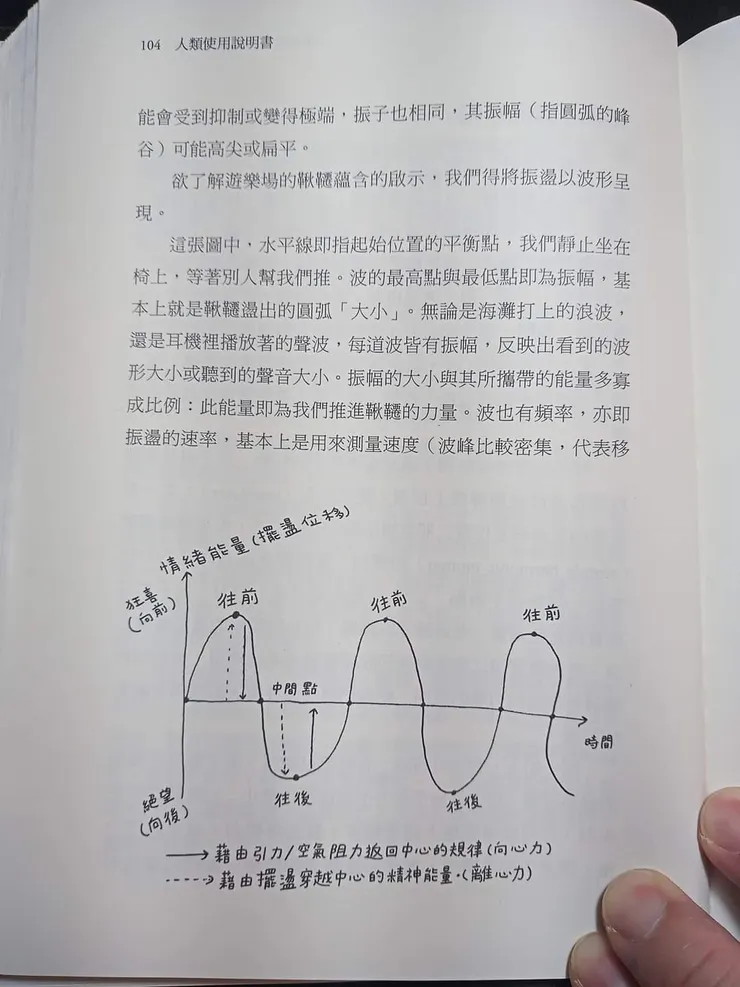 104 人類使用說明書
能會受到抑制或變得極端，振子也相同，其振幅（指圓弧的峰
谷）可能高尖或扁平。
欲了解遊樂場的鞦韆蘊含的啟示，我們得將振盪以波形呈
現。
這張圖中，水平線即指起始位置的平衡點，我們靜止坐在
椅上，等著別人幫我們推。波的最高點與最低點即為振幅，基
本上就是鞦韆盪出的圓弧「大小」。無論是海灘打上的浪波，
還是耳機裡播放著的聲波，每道波皆有振幅，反映出看到的波
形大小或聽到的聲音大小。振幅的大小與其所攜帶的能量多寡
成比例：此能量即為我們推進鞦韆的力量。波也有頻率，亦即
振盪的速率，基本上是用來測量速度（波峰比較密集，代表移
情緒能量(擺盪位移)
狂喜
(向前)
往前
往前
往前
中間點
時間
絕望
(向後)
往後
往後
藉由引力/空氣阻力返回中心的規律(向心力)
藉由擺盪穿越中心的精神能量.(離心力)